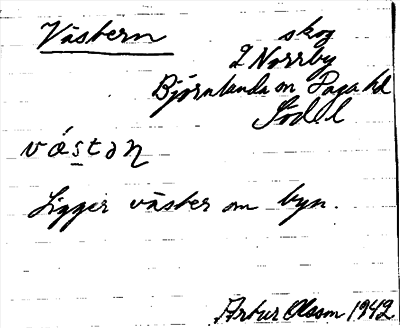 Västern
skog
2 Norrby
Björnlunda sn Daga hd
Södl
västan
Ligger väster om byn.
Artur Olsson 1942